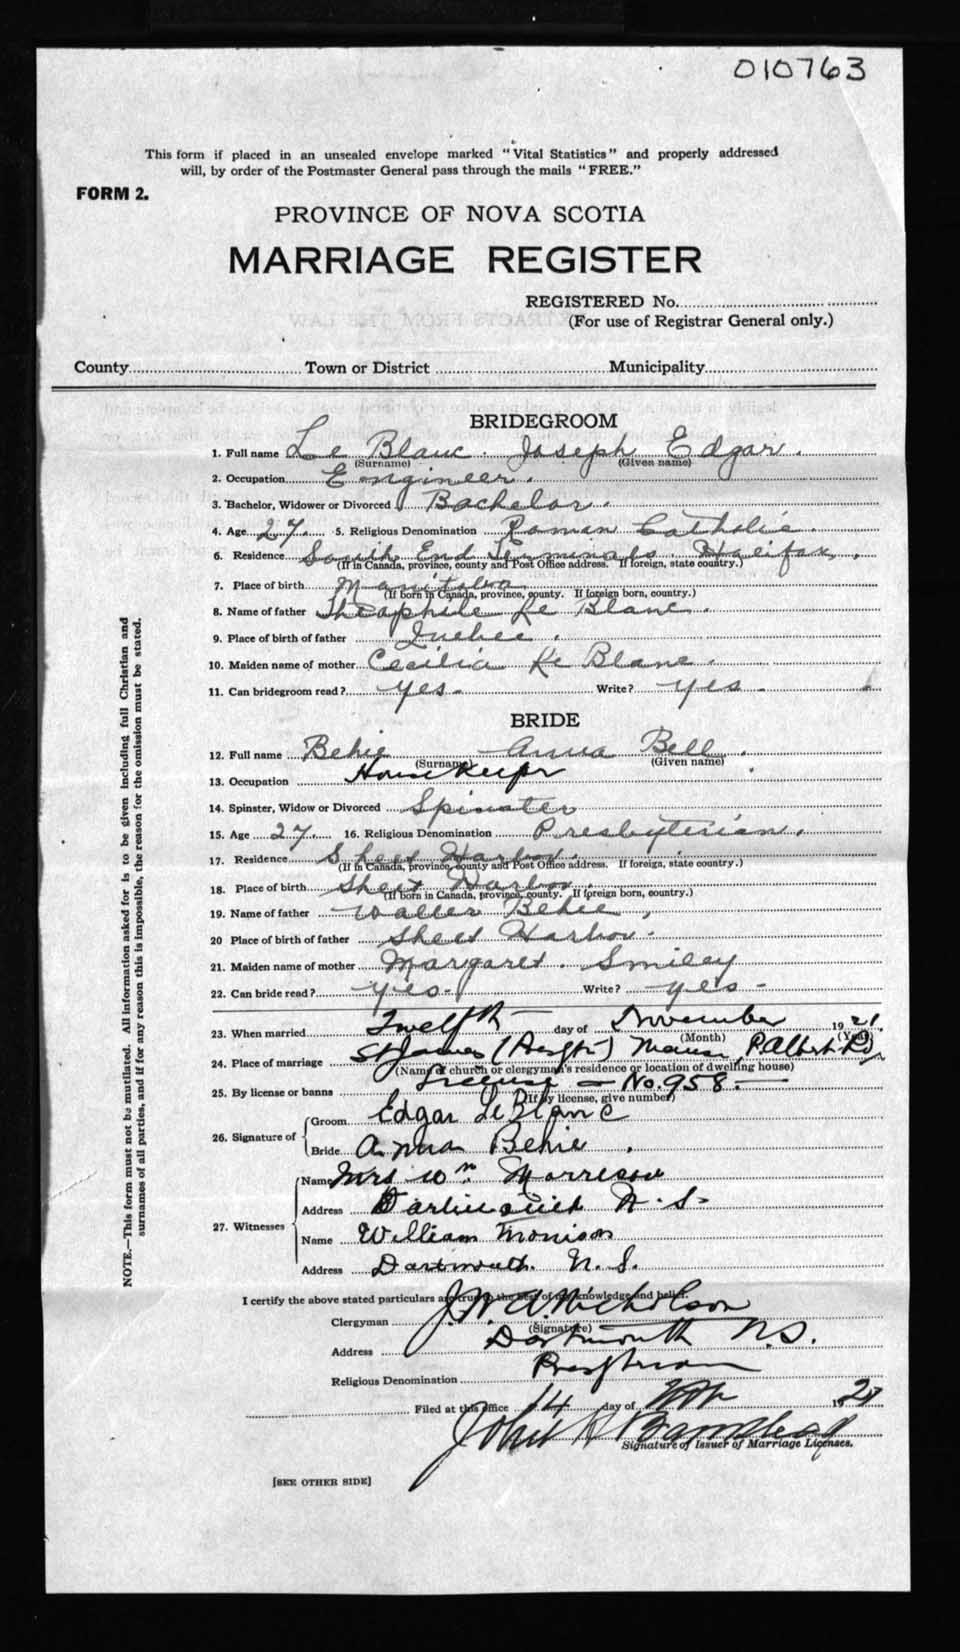 010763
This form if placed in an unsealed envelope marked "Vital Statistics" and properly addressed
will, by order of the Postmaster General pass through the mails "FREE."
FORM 2.
PROVINCE OF NOVA SCOTIA
MARRIAGE REGISTER
REGISTERED No.
(For use of Registrar General only.)
County Town or District Municipality
BRIDEGROOM
1. Full name Le Blanc. Joseph Edgar.
(Surname) (Given name)
2. Occupation Engineer.
3. Bachelor, Widower or Divorced Bachelor.
4. Age 27. 5. Religious Denomination Roman Catholic.
6. Residence South End Terminals Halifax.
(If in Canada, province, county and Post Office address. If foreign, state country.)
7. Place of birth Manitoba
(If born in Canada, province, county. If foreign born, country.)
8. Name of father Theophile Le Blanc.
9. Place of birth of father Quebec.
10. Maiden name of mother Cecilia Le Blanc.
11. Can bridegroom read? yes. Write? yes.
BRIDE
12. Full name Behie Anna Bell.
(Surname) (Given name)
13. Occupation House Keeper
14. Spinster, Widow or Divorced Spinster
15. Age 27. 16. Religious Denomination Presbyterian.
17. Residence Sheet Harbor.
(If in Canada, province, county and Post Office address. If foreign, state country.)
18. Place of birth Sheet Harbor.
(If born in Canada, province, county. If foreign born, country.)
19. Name of father Walter Behie,
20 Place of birth of father Sheet Harbor.
21. Maiden name of mother Margaret. Smiley
22. Can bride read? yes. Write? yes.
23. When married Twelfth day of November 1921.
(Month) (Year)
24. Place of marriage St James (Presbn) Manse, P. Albert Rd,
(Name of church or clergyman's residence or location of dwelling house)
25. By license or banns License — No. 958.
(If by license, give number)
26. Signature of
Groom Edgar LeBlanc
Bride Anna Behie.
27. Witnesses
Name Mrs Wm Morrison
Address Dartmouth N.S.
Name William Morrison
Address Dartmouth. N.S.
I certify the above stated particulars are true to the best of my knowledge and belief.
Clergyman J. W. A. Nicholson
(Signature)
Address Dartmouth N.S.
Religious Denomination Presbyterian
Filed at this office 14 day of Nov 1921
John
Signature of Issuer of Marriage Licenses.
[SEE OTHER SIDE]
NOTE.—This form must not be mutilated. All information asked for is to be given including full Christian and
surnames of all parties, and if for any reason this is impossible, the reason for the omission must be stated.